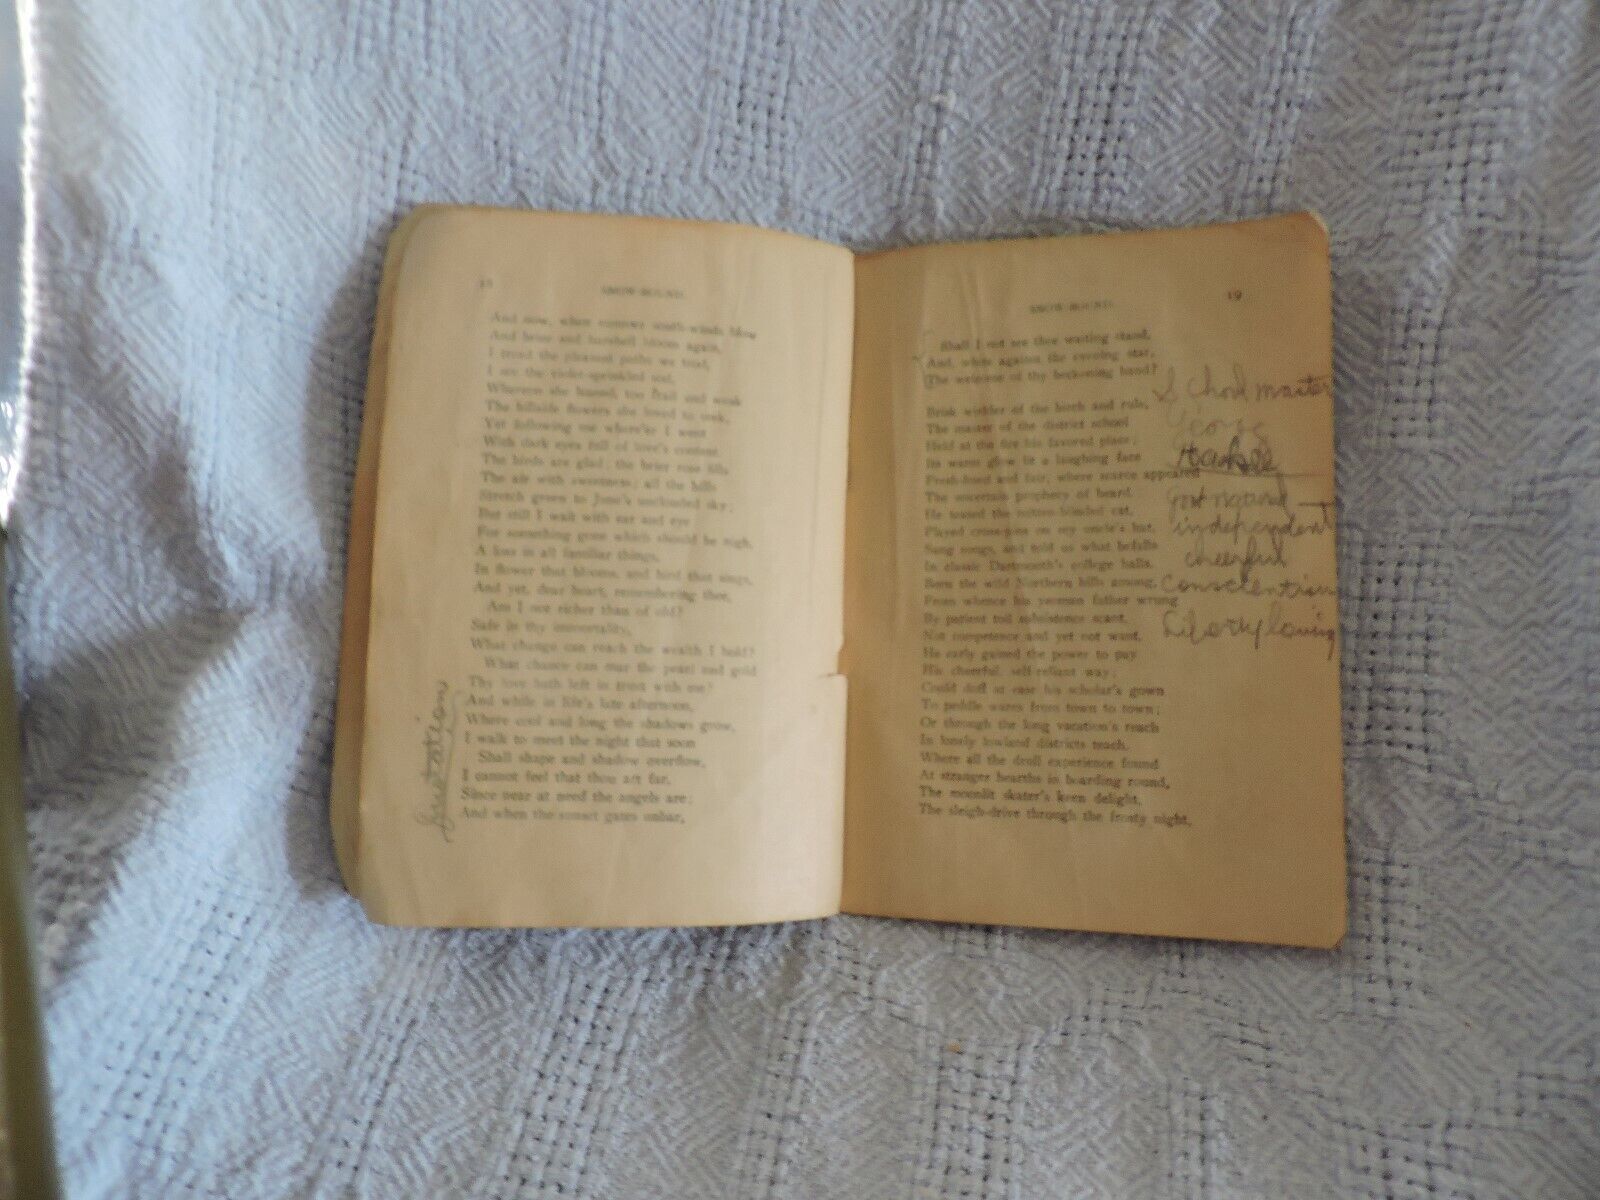 18
SNOW-BOUND.
And now, when summer south-winds blow
And brier and harebell bloom again,
I tread the pleasant paths we trod,
I see the violet-sprinkled sod,
Whereon she leaned, too frail and weak
The hillside flowers she loved to seek,
Yet following me where'er I went
With dark eyes full of love's content.
The birds are glad; the brier rose fills
The air with sweetness; all the hills
Stretch green to June's unclouded sky;
But still I wait with ear and eye
For something gone which should be nigh,
A loss in all familiar things,
In flower that blooms, and bird that sings.
And yet, dear heart, remembering thee,
Am I not richer than of old?
Safe in thy immortality,
What change can reach the wealth I hold?
What chance can mar the pearl and gold
Thy love hath left in trust with me?
And while in life's late afternoon,
Where cool and long the shadows grow,
I walk to meet the night that soon
Shall shape and shadow overflow,
I cannot feel that thou art far,
Since near at need the angels are;
And when the sunset gates unbar,
SNOW-BOUND.
19
Shall I not see thee waiting stand,
And, white against the evening star,
The welcome of thy beckoning hand?
Brisk wielder of the birch and rule,
The master of the district school
Held at the fire his favored place;
Its warm glow lit a laughing face
Fresh-hued and fair, where scarce appeared
The uncertain prophecy of beard.
He teased the mitten-blinded cat,
Played cross-pins on my uncle's hat,
Sang songs, and told us what befalls
In classic Dartmouth's college halls.
Born the wild Northern hills among,
From whence his yeoman father wrung
By patient toil subsistence scant,
Not competence and yet not want,
He early gained the power to pay
His cheerful, self-reliant way;
Could doff at ease his scholar's gown
To peddle wares from town to town;
Or through the long vacation's reach
In lonely lowland districts teach,
Where all the droll experience found
At stranger hearths in boarding round,
The moonlit skater's keen delight,
The sleigh-drive through the frosty night,
School master
George
independent
cheerful